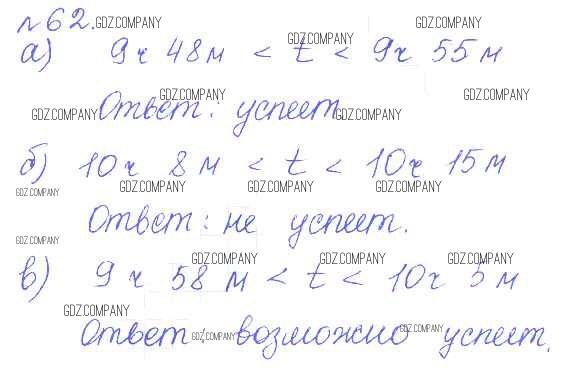 №62. GDZ.COMPANY GDZ.COMPANY
а) 9ч 48м < t < 9ч 55м
GDZ.COMPANY
GDZ.COMPANY GDZ.COMPANY
GDZ.COMPANY Ответ: успеет GDZ.COMPANY
б) 10ч 8м < t < 10ч 15м
GDZ.COMPANY GDZ.COMPANY GDZ.COMPANY GDZ.COMPANY
Ответ: не успеет.
GDZ.COMPANY
GDZ.COMPANY GDZ.COMPANY GDZ.COMPANY
в) 9ч 58м < t < 10ч 5м
GDZ.COMPANY
Ответ GDZ.COMPANY возможно GDZ.COMPANY успеет.